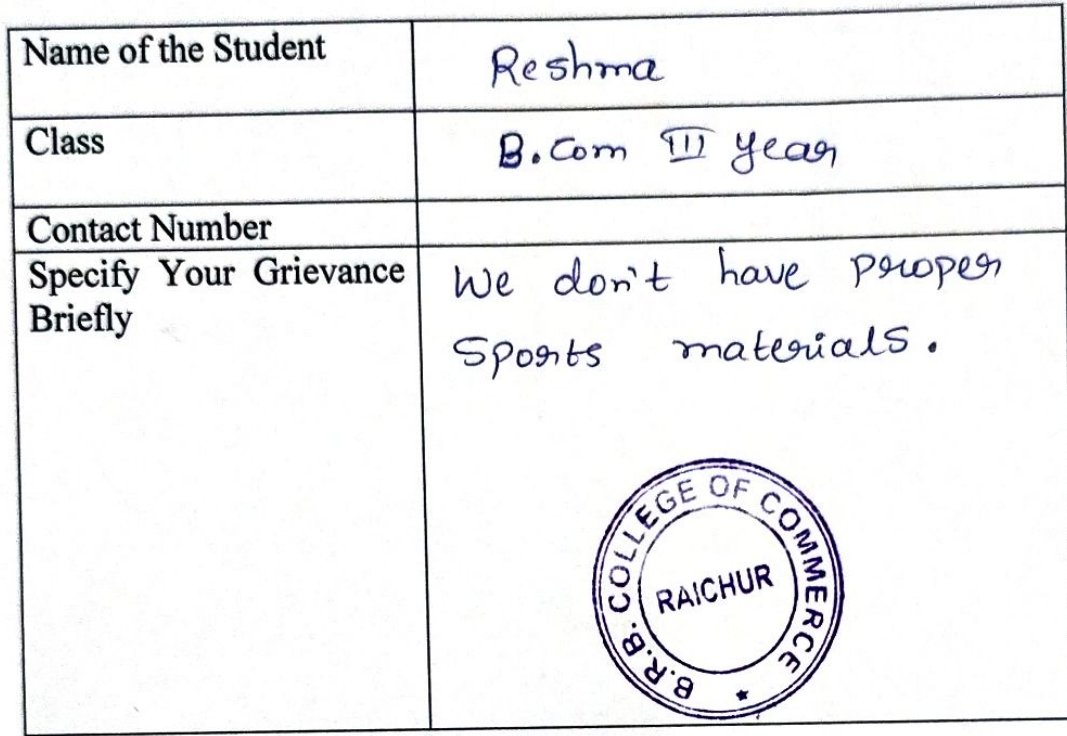 Name of the Student
Reshma
Class
B.Com III Year
Contact Number
Specify Your Grievance
Briefly
We don't have proper
Sports materials.
B.R.B. COLLEGE OF COMMERCE
RAICHUR